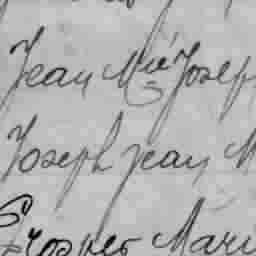 Jean Mie Josep
Joseph jean M
Prosper Mari